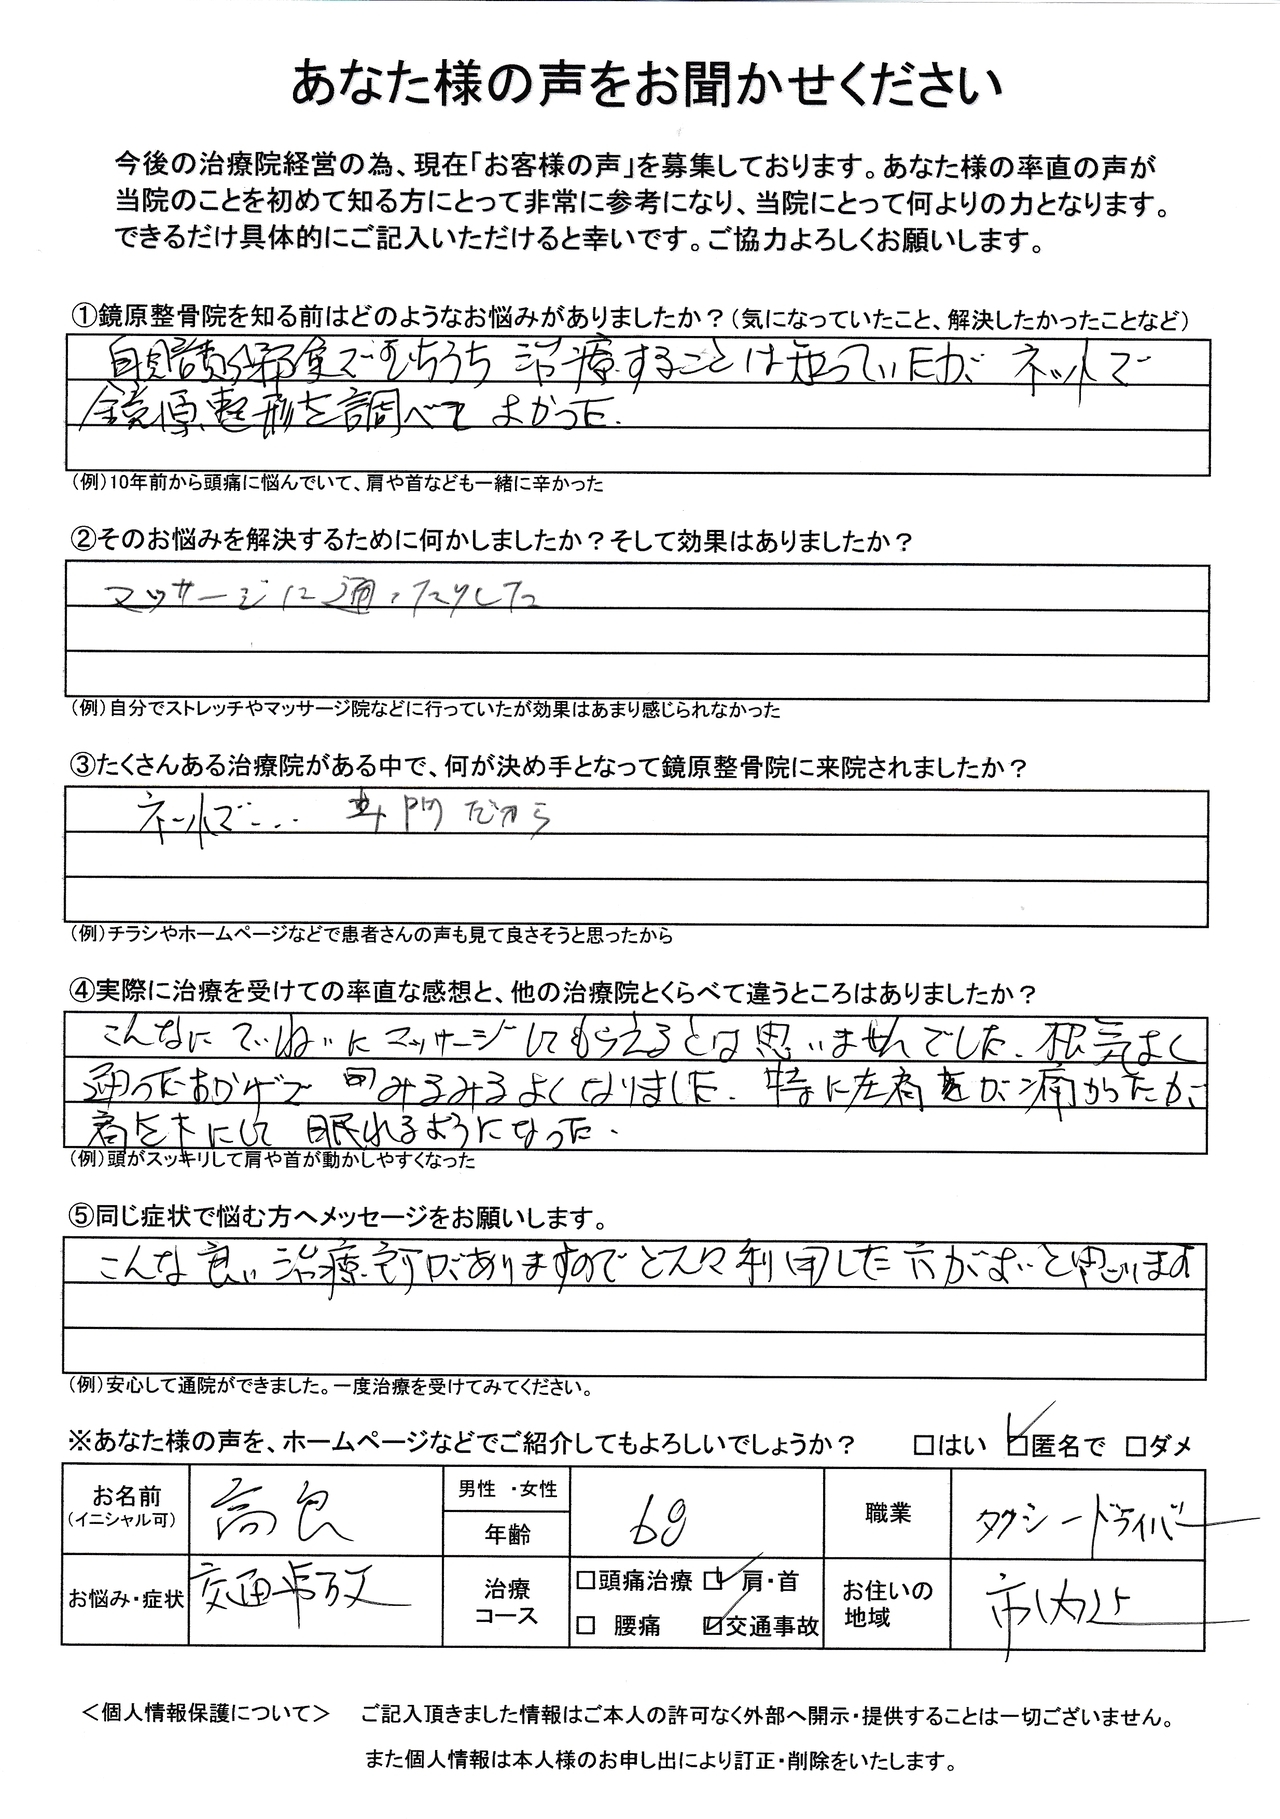 あなた様の声をお聞かせください
今後の治療院経営の為、現在「お客様の声」を募集しております。あなた様の率直の声が
当院のことを初めて知る方にとって非常に参考になり、当院にとって何よりの力となります。
できるだけ具体的にご記入いただけると幸いです。ご協力よろしくお願いします。
①鏡原整骨院を知る前はどのようなお悩みがありましたか？（気になっていたこと、解決したかったことなど）
自賠責保険でむちうち 治療することは知っていたが、ネットで
鏡原整形を調べてよかった.
（例）10年前から頭痛に悩んでいて、肩や首なども一緒に辛かった
②そのお悩みを解決するために何かしましたか？そして効果はありましたか？
マッサージに通ったりした
（例）自分でストレッチやマッサージ院などに行っていたが効果はあまり感じられなかった
③たくさんある治療院がある中で、何が決め手となって鏡原整骨院に来院されましたか？
ネットで... 専門だから
（例）チラシやホームページなどで患者さんの声も見て良さそうと思ったから
④実際に治療を受けての率直な感想と、他の治療院とくらべて違うところはありましたか？
こんなにていねいにマッサージしてもらえるとは思いませんでした. 根気よく
通ったおかげで みるみるよくなりました. 特に左肩が痛かったが、
肩を下にして 眠れるようになった.
（例）頭がスッキリして肩や首が動かしやすくなった
⑤同じ症状で悩む方へメッセージをお願いします。
こんな良い治療がありますのでどんどん利用した方がよいと思います
（例）安心して通院ができました。一度治療を受けてみてください。
※あなた様の声を、ホームページなどでご紹介してもよろしいでしょうか？ □はい ☑匿名で □ダメ
お名前（イニシャル可） 高良 男性 ・女性 年齢 69 職業 タクシードライバー
お悩み・症状 交通事故 治療コース □頭痛治療 ☑肩・首 □腰痛 ☑交通事故 お住いの地域 市内
＜個人情報保護について＞ ご記入頂きました情報はご本人の許可なく外部へ開示・提供することは一切ございません。
また個人情報は本人様のお申し出により訂正・削除をいたします。